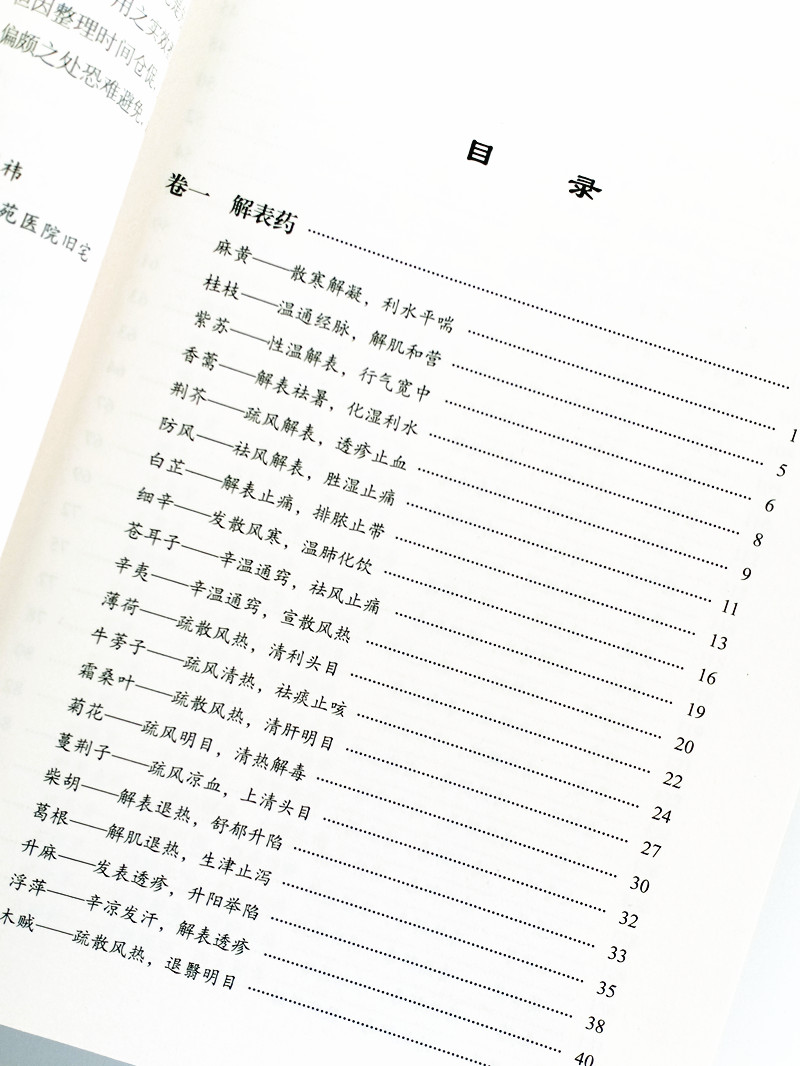 用之实效
因整理时间仓促,
偏颇之处恐难避免,
祎
苑医院旧宅
目 录
卷一 解表药
麻黄——散寒解凝，利水平喘 1
桂枝——温通经脉，解肌和营 5
紫苏——性温解表，行气宽中 6
香薷——解表祛暑，化湿利水 8
荆芥——疏风解表，透疹止血 9
防风——祛风解表，胜湿止痛 11
白芷——解表止痛，排脓止带 13
细辛——发散风寒，温肺化饮 16
苍耳子——辛温通窍，祛风止痛 19
辛夷——辛温通窍，宣散风热 20
薄荷——疏散风热，清利头目 22
牛蒡子——疏风清热，祛痰止咳 24
霜桑叶——疏散风热，清肝明目 27
菊花——疏风明目，清热解毒 30
蔓荆子——疏风凉血，上清头目 32
柴胡——解表退热，舒郁升陷 33
葛根——解肌退热，生津止泻 35
升麻——发表透疹，升阳举陷 38
浮萍——辛凉发汗，解表透疹 40
木贼——疏散风热，退翳明目